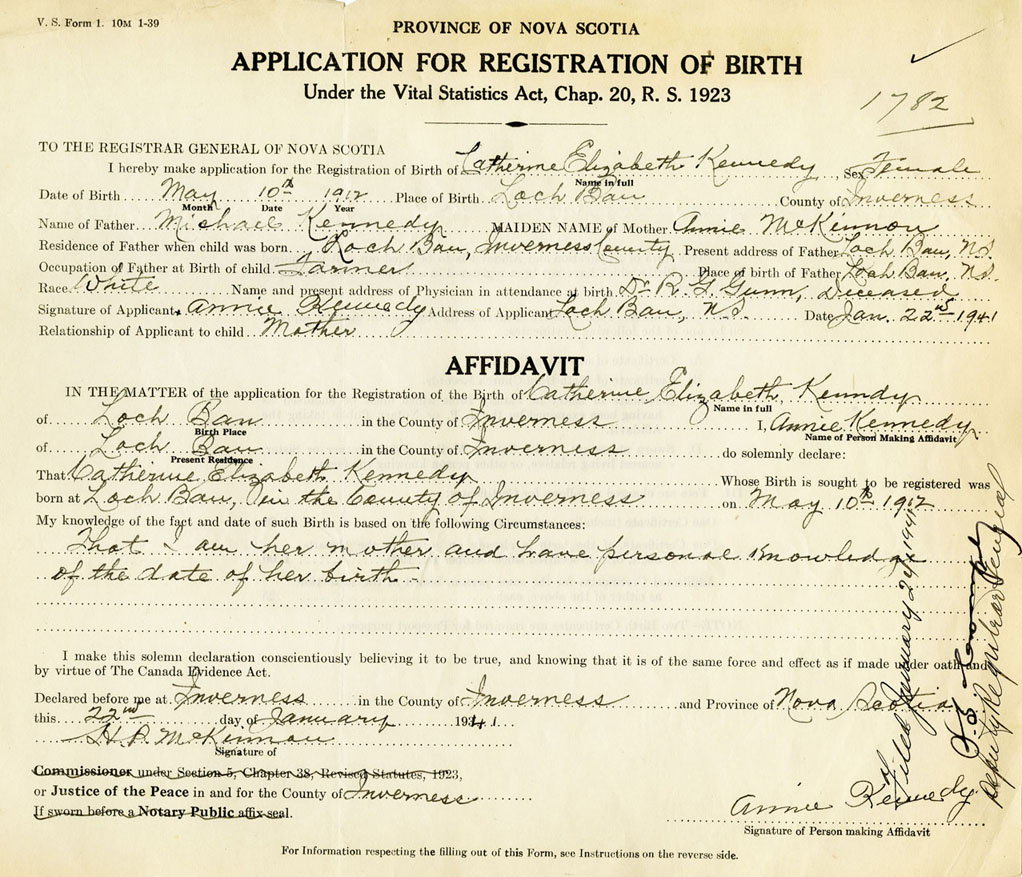 V. S. Form 1. 10M 1-39
PROVINCE OF NOVA SCOTIA
APPLICATION FOR REGISTRATION OF BIRTH
Under the Vital Statistics Act, Chap. 20, R. S. 1923
1782
TO THE REGISTRAR GENERAL OF NOVA SCOTIA
I hereby make application for the Registration of Birth of Catherine Elizabeth Kennedy Sex Female
Name in full
Date of Birth May 10th 1912 Place of Birth Loch Ban County of Inverness
Month Date Year
Name of Father Michael Kennedy MAIDEN NAME of Mother Annie McKinnon
Residence of Father when child was born Loch Ban, Inverness County Present address of Father Loch Ban, N.S.
Occupation of Father at Birth of child Farmer Place of birth of Father Loch Ban, N.S.
Race White Name and present address of Physician in attendance at birth Dr. R. G. Gunn, Deceased
Signature of Applicant Annie Kennedy Address of Applicant Loch Ban, N.S. Date Jan. 22nd 1941
Relationship of Applicant to child Mother
AFFIDAVIT
IN THE MATTER of the application for the Registration of the Birth of Catherine Elizabeth Kenndy
Name in full
of Loch Ban in the County of Inverness I, Annie Kennedy
Birth Place Name of Person Making Affidavit
of Loch Ban in the County of Inverness do solemnly declare:
Present Residence
That Catherine Elizabeth Kennedy Whose Birth is sought to be registered was
born at Loch Ban, in the County of Inverness on May 10th 1912
My knowledge of the fact and date of such Birth is based on the following Circumstances:
That I am her mother and have personal knowledge
of the date of her birth.
I make this solemn declaration conscientiously believing it to be true, and knowing that it is of the same force and effect as if made under oath and
by virtue of The Canada Evidence Act.
Declared before me at Inverness in the County of Inverness and Province of Nova Scotia
this 22nd day of January 1941
H. P. McKinnon
Signature of
Commissioner under Section 5, Chapter 38, Revised Statutes, 1923,
or Justice of the Peace in and for the County of Inverness
If sworn before a Notary Public affix seal.
Annie Kennedy
Signature of Person making Affidavit
Filed January 24, 1941
Deputy Registrar General
For Information respecting the filling out of this Form, see Instructions on the reverse side.